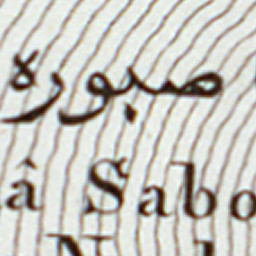 صبوره
â Sabo